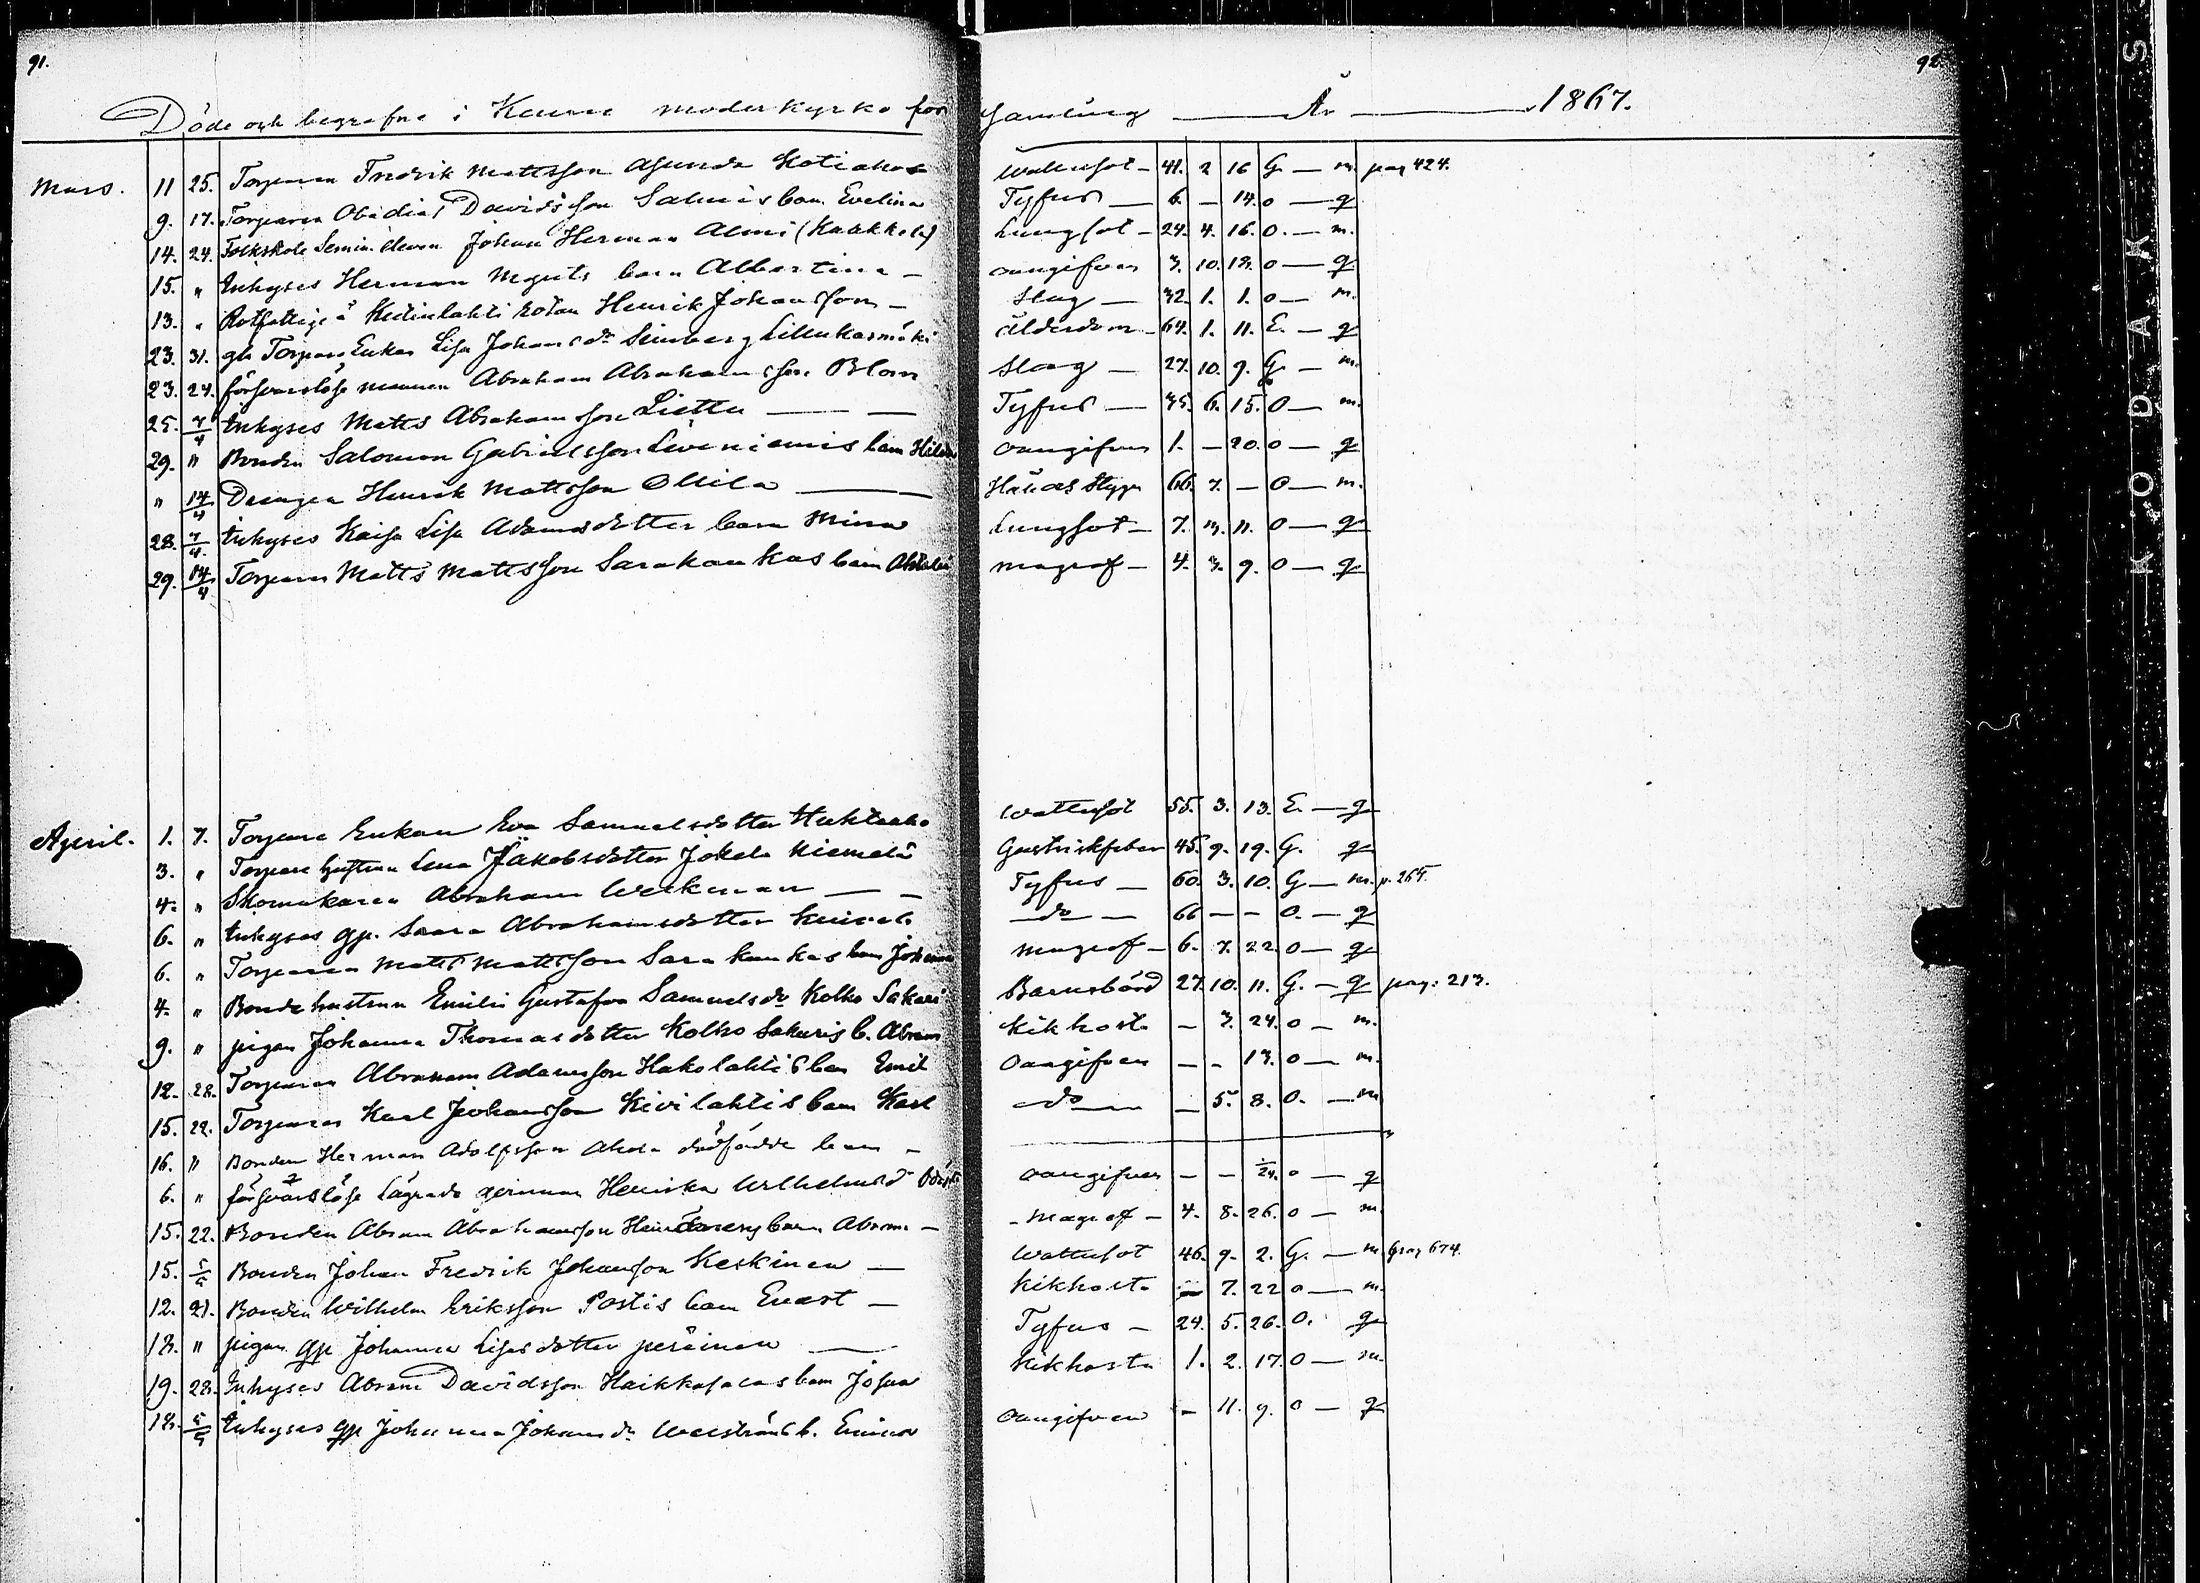 91.
92
Döde och begrafne i Keuru moderkyrko för samling År 1867.
Mars. 11 25. Torparen Fredrik Mattsson Asunda Kotiaho Wattusot 41. 2 16 G. m. pag 424.
9. 17. Torparen Obadias Davidsson Salmis barn Evelina Tyfus 6. - 14. o q
14. 24. Folkskole Semin. eleven Johan Herman Almi (Kaakkola) Lungsot 24. 4. 16. O. m.
15. " Inhyses Herman barn Albertina oangifven 3. 10. 13. o q
13. " Rotfattige å rotan Henrik Johansson Slag 32. 1. 1. o m.
23. 31. gla Torpare Enkan Lisa Johansdr Ålderdom 64. 1. 11. E. q
23. 24. försvarslöse mannen Abraham Abrahamsson Blom Slag 27. 10. 9. G. m.
25. 7/4 Inhyses Matts Abrahamsson Liettu Tyfus 35. 6. 15. O m.
29. " Bonden Salomon Gabrielsson Liveniemis barn Hilda oangifven 1. - 20. o q
" 14/4 Drängen Henrik Mattsson Ollila Håll och Stygn 66. 7. - O m.
28. 7/4. Inhyses Kaisa Lisa Adamsdotter barn Mina Lungsot 7. 11. O q
29. 14/4 Torparen Matts Mattsson Sarakankas barn magref 4. 3. 9. O q
April. 1. 7. Torpare Enkan Eva Samuelsdotter Huhtaaho Wattusot 55. 3. 13. E. q
3. " Torpare hustrun Lena Jakobsdotter Jokela Niemelä Gastriskfeber 45. 9. 19. G. q
4. " Skomakaren Abraham Weckman Tyfus 60. 3. 10. G m. p. 265.
6. " Inhyses qp. Saara Abrahamsdotter do 66 - - O. q
6. " Torparen Matts Mattsson Sarakankas barn Johanna magref 6. 7. 22. o q
4. " Bonde hustrun Emilia Gustafva Samuelsdr Kolho Sakari Barnsbörd 27. 10. 11. G. q pag. 213.
9. " pigan Johanna Thomasdotter Kolho Sakaris b. Abram Kikhosta - 7. 24. o m.
12. 28. Torparen Abraham Adamsson Hakolahtis barn Emil oangifven - - 13. o m.
15. 22. Torparen Karl Johansson Kivilahtis barn Karl do - 5. 8. O. m
16. " Bonden Herman Adolfsson Ahola dödfödde barn
6. " försvarslöse Lägrade qvinnan Henrika Wilhelmsdr oangifven - - 1/24. o q
15. 22. Bonden Abram Abrahamsson barn Abram magref 4. 8. 26. o m.
15. 5/5 Bonden Johan Fredrik Johansson Keskinen Wattusot 46. 9. 2. G. m pag 674.
12. 21. Bonden Wilhelm Eriksson Postis barn Evert Kikhosta - 7. 22 o m.
12. " pigan qp Johanna Lisasdotter peräinen Tyfus 24. 5. 26. O. q
19. 28. Inhyses Abram Davidsson Haikkasalas barn Josua Kikhosta 1. 2. 17. O m.
12. 5/5 Inhyses qp Johanna Johansdr b. Emma oangifven - 11. 9. o q
KODAK S